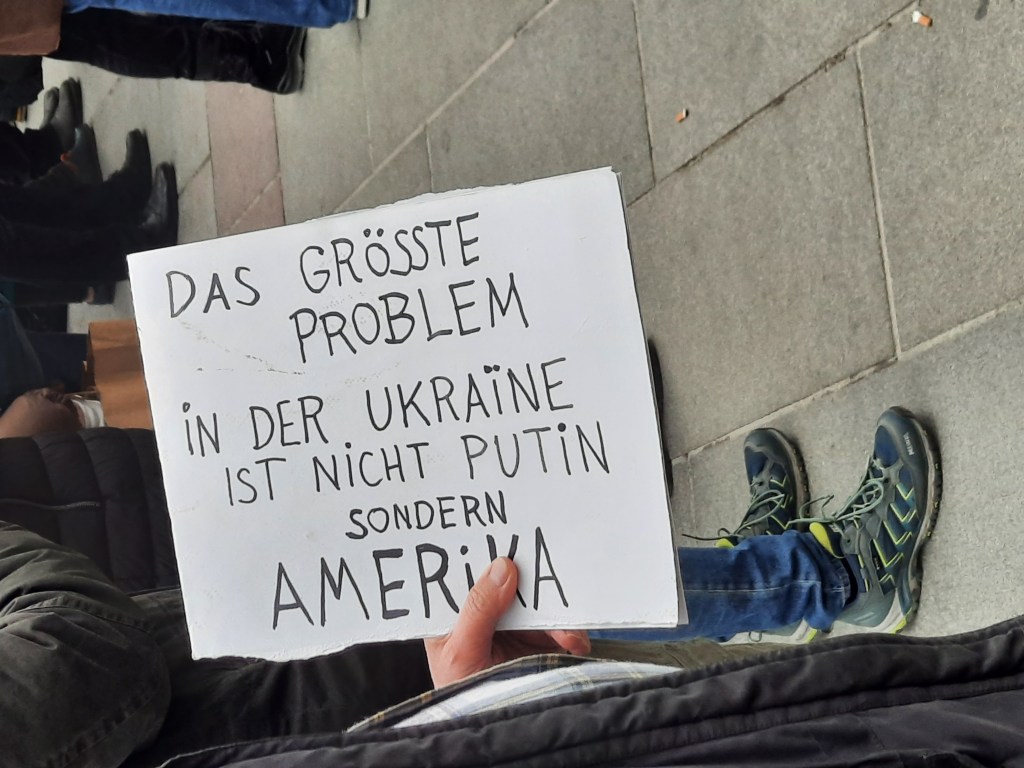 DAS GRÖSSTE
PROBLEM
iN DER UKRAÏNE
IST NiCHT PUTiN
SONDERN
AMERiKA